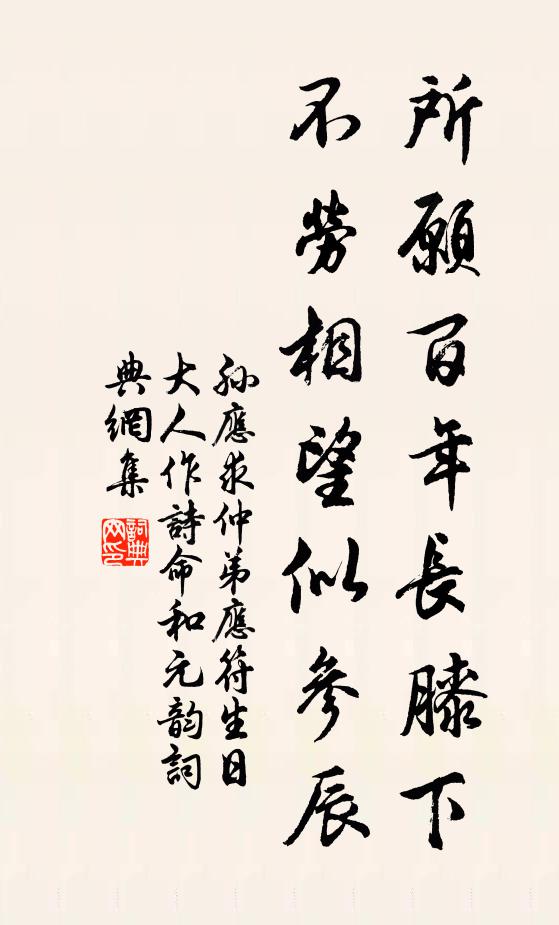 所願百年長膝下
不勞相望似參辰
孫應求仲弟應符生日
大人作詩命和元韵詞
典網集
詞典網印